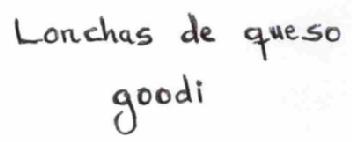 Lonchas de queso
goodi